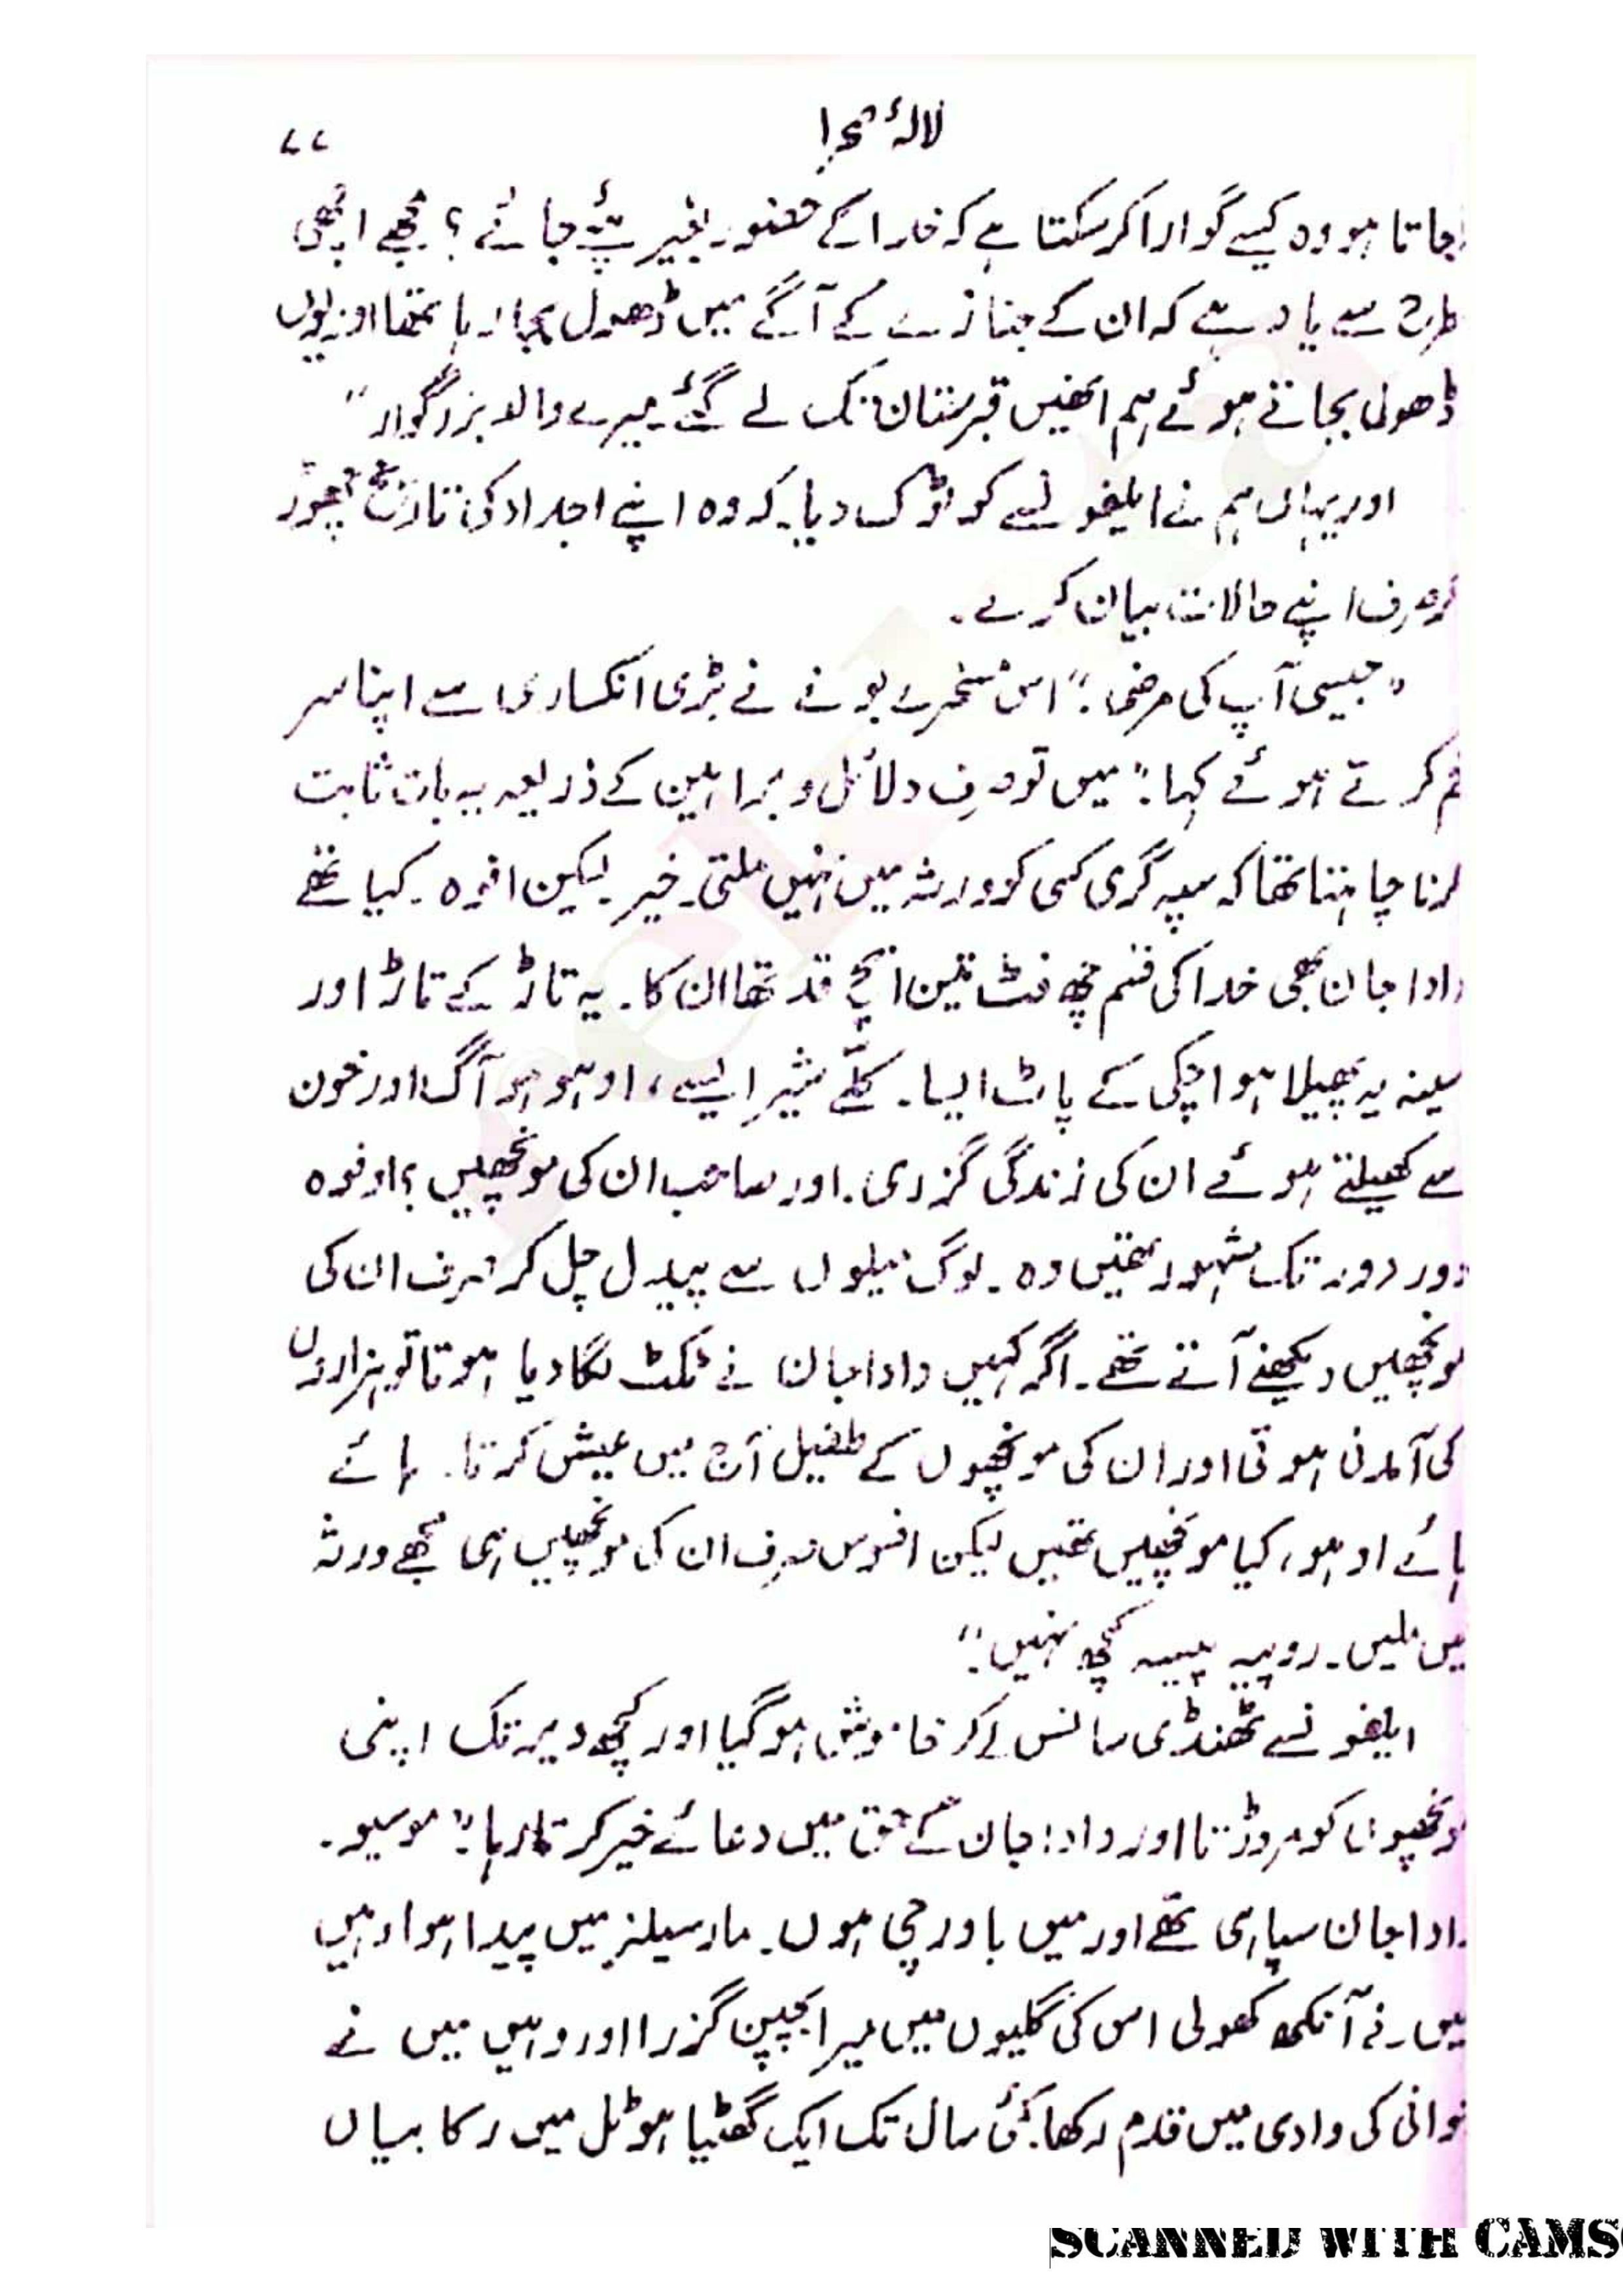 لالۂ صحرا ۷۷
جاتا ہو وہ کیسے گوارا کر سکتا ہے کہ خدا کے حضور بغیر پئے جائے؟ مجھے اچھی
طرح سے یاد ہے کہ ان کے جنازے کے آگے میں ڈھول بجا رہا تھا اور یوں
ڈھول بجاتے ہوئے ہم انھیں قبرستان تک لے گئے۔ میرے والد بزرگوار"
اور یہاں ہم نے ایلفونسے کو ٹوک دیا۔ کہ وہ اپنے اجداد کی تاریخ چھوڑ
صرف اپنے حالات بیان کرے۔
"جیسی آپ کی مرضی۔" اس مسخرے بونے نے بڑی انکساری سے اپنا سر
خم کرتے ہوئے کہا۔" میں تو صرف دلائل و براہین کے ذریعہ یہ بات ثابت
کرنا چاہتا تھا کہ سپہ گری کسی کو ورثہ میں نہیں ملتی۔ خیر۔ لیکن افوہ۔ کیا تھے
دادا جان بھی خدا کی قسم چھ فٹ تین انچ قد تھا ان کا۔ یہ تاڑ کے تاڑ اور
سینہ یہ پھیلا ہوا چکی کے پاٹ ایسا۔ کلّے شیر ایسے، اوہو ہو آگ اور خون
سے کھیلتے ہوئے ان کی زندگی گزری۔ اور صاحب ان کی مونچھیں؟ اوفوہ
دور دور تک مشہور تھیں وہ۔ لوگ میلوں سے پیدل چل کر صرف ان کی
مونچھیں دیکھنے آتے تھے۔ اگر کہیں دادا جان نے ٹکٹ لگا دیا ہوتا تو ہزاروں
کی آمدنی ہوتی اور ان کی مونچھوں کے طفیل آج میں عیش کرتا۔ ہائے
ہائے اوہو، کیا مونچھیں تھیں لیکن افسوس صرف ان کی مونچھیں ہی مجھے ورثہ
میں ملیں۔ روپیہ پیسہ کچھ نہیں۔"
ایلفونسے ٹھنڈی سانس لے کر خاموش ہو گیا اور کچھ دیر تک اپنی
مونچھوں کو مروڑتا اور دادا جان کے حق میں دعائے خیر کرتا رہا۔" موسیو۔
دادا جان سپاہی تھے اور میں باورچی ہوں۔ مارسیلز میں پیدا ہوا وہیں
میں نے آنکھ کھولی اس کی گلیوں میں میرا بچپن گزرا اور وہیں میں نے
جوانی کی وادی میں قدم رکھا۔ کئی سال تک ایک گھٹیا ہوٹل میں رکابیاں
SCANNED WITH CAMS